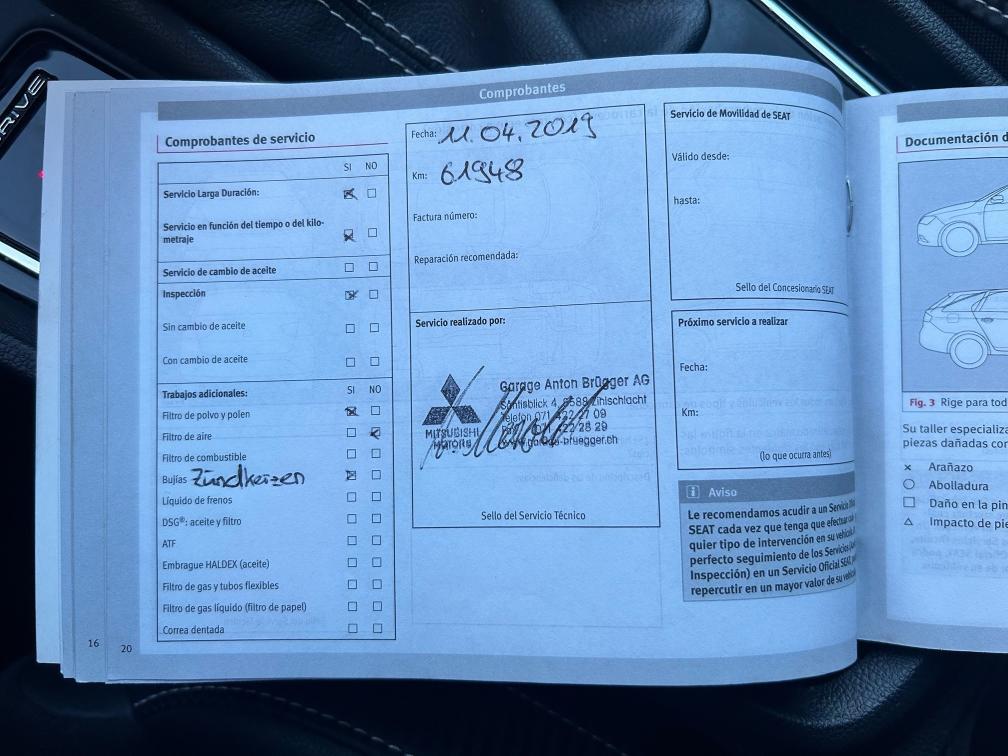 DRIVE
Comprobantes
Comprobantes de servicio
SI NO
Servicio Larga Duración:
Servicio en función del tiempo o del kilo-
metraje
Servicio de cambio de aceite
Inspección
Sin cambio de aceite
Con cambio de aceite
Trabajos adicionales: SI NO
Filtro de polvo y polen
Filtro de aire
Filtro de combustible
Bujías Zündkerzen
Líquido de frenos
DSG®: aceite y filtro
ATF
Embrague HALDEX (aceite)
Filtro de gas y tubos flexibles
Filtro de gas líquido (filtro de papel)
Correa dentada
16
20
Fecha: 11.04.2019
Km: 61948
Factura número:
Reparación recomendada:
Servicio realizado por:
MITSUBISHI
MOTORS
Garage Anton Brügger AG
Säntisblick 4, 8588 Zihlschlacht
Telefon 071 422 27 09
Fax 071 422 28 29
www.garage-bruegger.ch
Sello del Servicio Técnico
Servicio de Movilidad de SEAT
Válido desde:
hasta:
Sello del Concesionario SEAT
Próximo servicio a realizar
Fecha:
Km:
(lo que ocurra antes)
i Aviso
Le recomendamos acudir a un Servicio
SEAT cada vez que tenga que efectuar
quier tipo de intervención en su vehículo.
perfecto seguimiento de los Servicios
Inspección) en un Servicio Oficial SEAT
repercutir en un mayor valor de su
Documentación d
Fig. 3 Rige para tod
Su taller especializa
piezas dañadas con
Arañazo
Abolladura
Daño en la pin
Impacto de pie